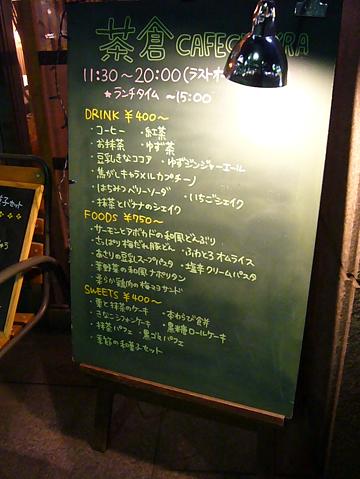 茶倉 CAFE
11:30〜20:00(ラストオー
★ランチタイム 〜15:00
DRINK ¥400〜
・コーヒー ・紅茶
・お抹茶 ・ゆず茶
・豆乳きなココア ・ゆずジンジャーエール
・焦がしキャラメルカプチーノ
・はちみつベリーソーダ ・いちごシェイク
・抹茶とバナナのシェイク
FOODS ¥750〜
・サーモンとアボカドの和風どんぶり
・さっぱり梅だれ豚どん ・ふわとろオムライス
・あさりの豆乳スープパスタ ・塩辛クリームパスタ
・茎野菜の和風ナポリタン
・柔らか鶏肉の梅ココサンド
SWEETS ¥400〜
・栗と抹茶のケーキ ・本わらび餅
・きなこシフォンケーキ ・黒糖ロールケーキ
・抹茶パフェ ・黒ごまパフェ
・季節の和菓子セット
子セット